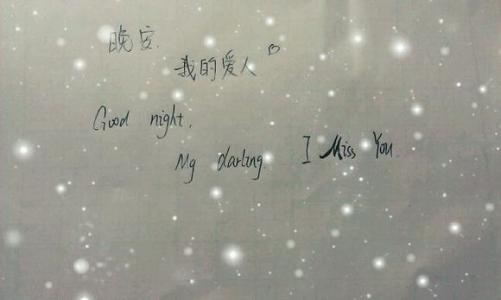 晚安.
我的爱人♡
Good night.
My darling. I Miss You.